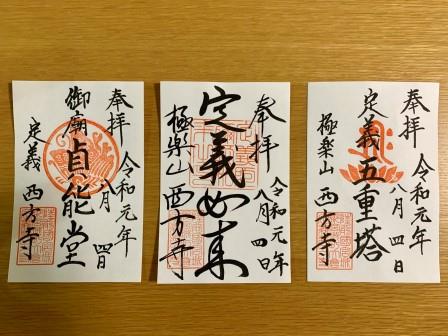 奉拝
令和元年
八月四日
定義五重塔
極楽山
西方寺
奉拝
令和元年
八月四日
定義如来
極楽山西方寺
奉拝
令和元年
八月四日
御廟貞能堂
定義
西方寺